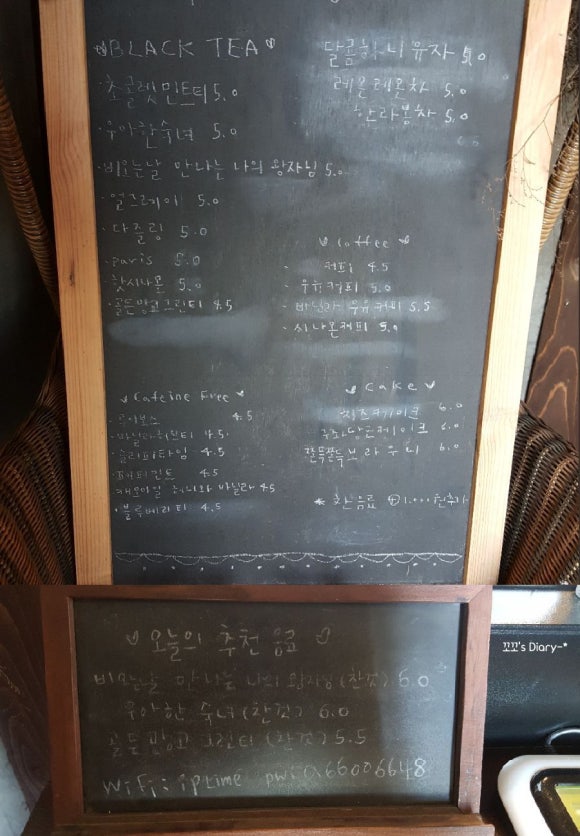 BLACK TEA
· 초콜렛 민트티 5.0
· 우아한숙녀 5.0
· 비오는날 만나는 나의 왕자님 5.0
· 얼그레이 5.0
· 다즐링 5.0
· paris 5.0
핫시나몬 5.0
· 골든망고그린티 4.5
달콤허니유자 5.0
레몬레몬차 5.0
한라봉차 5.0
Coffee
- 커피 4.5
- 우유커피 5.0
- 바닐라 우유커피 5.5
- 시나몬커피 5.0
Cafeine Free
· 루이보스 4.5
· 바닐라허브티 4.5
· 슬리피타임 4.5
· 페퍼민트 4.5
캐모마일 허니와 바닐라 4.5
· 블루베리티 4.5
Cake
치즈케이크 6.0
당근케이크 6.0
쫀득쫀득브라우니 6.0
* 찬음료 ⊕1.000원추가
오늘의 추천 음료
비오는날 만나는 나의 왕자님 (찬것) 6.0
우아한 숙녀 (찬것) 6.0
골든망고 그린티 (찬것) 5.5
WiFi: iptime pw: a66006648
꼬꼬's Diary~*